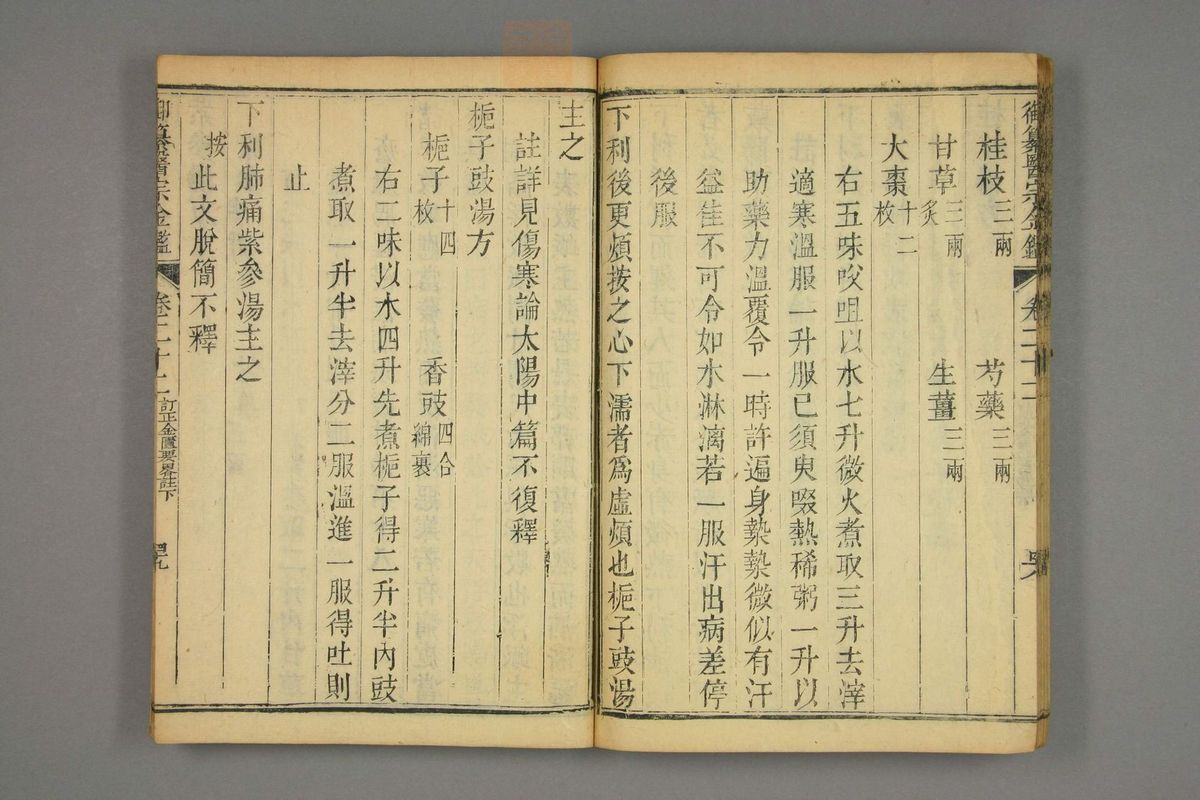 御纂醫宗金鑑 卷二十二
桂枝三兩 芍藥三兩
甘草三兩炙 生薑三兩
大棗十二枚
右五味㕮咀以水七升微火煮取三升去滓
適寒溫服一升服已須臾啜熱稀粥一升以
助藥力溫覆令一時許遍身漐漐微似有汗
益佳不可令如水淋漓若一服汗出病差停
後服
下利後更煩按之心下濡者爲虛煩也梔子豉湯
主之
註詳見傷寒論太陽中篇不復釋
梔子豉湯方
梔子十四枚 香豉四合綿裹
右二味以水四升先煮梔子得二升半內豉
煮取一升半去滓分二服溫進一服得吐則
止
下利肺痛紫參湯主之
按此文脫簡不釋
御纂醫宗金鑑 卷二十二 訂正金匱要畧註下